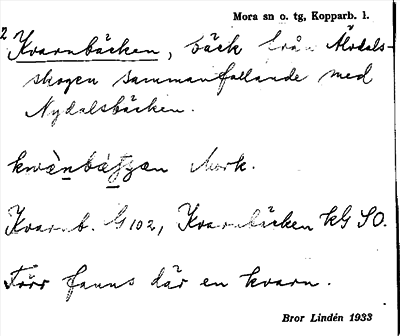 Mora sn o. tg, Kopparb. l.
2 Kvarnbäcken, bäck från Älvdals-
skogen sammanfallande med
Nydalsbäcken.
Mork.
Kvarnb. G 102, Kvarnbäcken kG SO.
Förr fanns där en kvarn.
Bror Lindén 1933